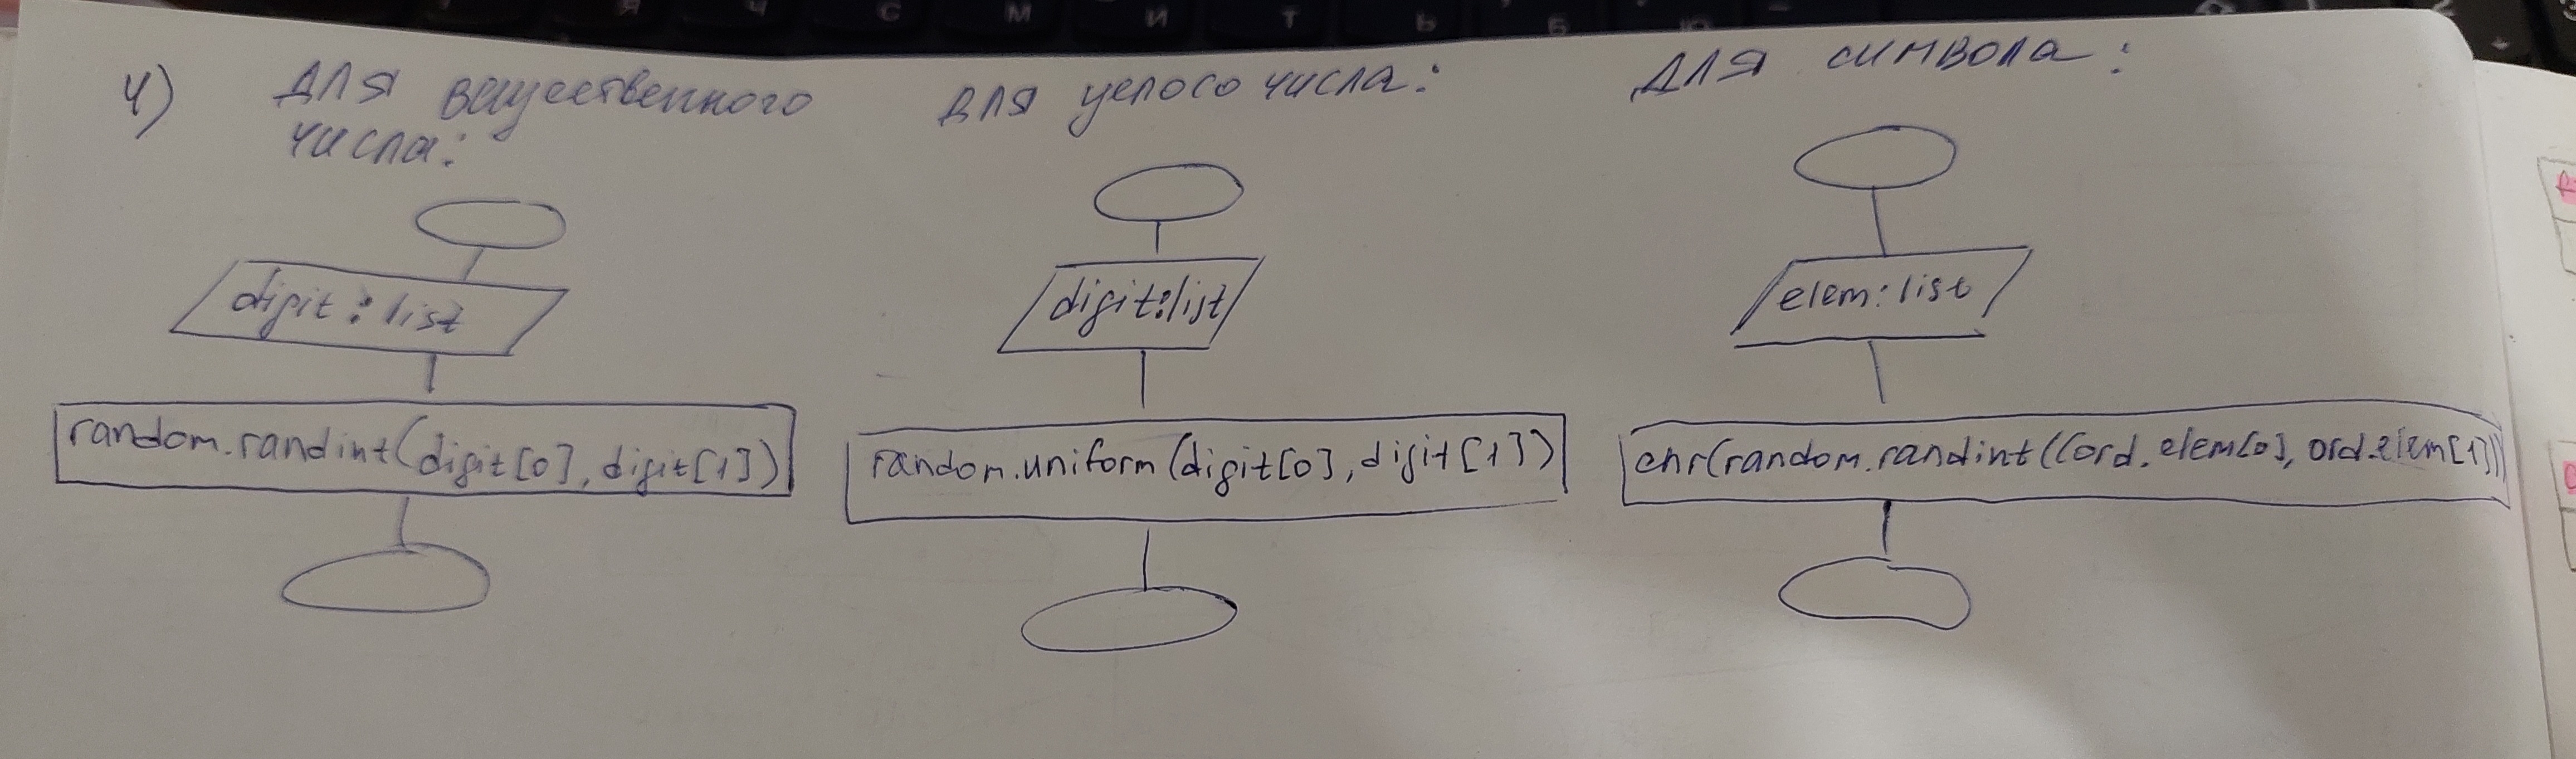 4)
для вещественного
числа:
digit: list
random.randint(digit[0], digit[1])
для целого числа:
digit:list
random.uniform(digit[0], digit[1])
для символа:
elem: list
chr(random.randint((ord.elem[0], ord.elem[1]))